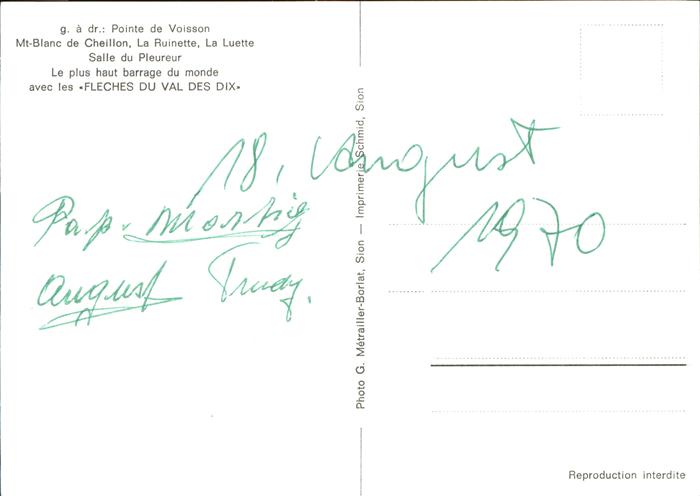 g. à dr.: Pointe de Voisson
Mt-Blanc de Cheillon, La Ruinette, La Luette
Salle du Pleureur
Le plus haut barrage du monde
avec les «FLECHES DU VAL DES DIX»
18. August
1970
Pap.
August Trudy.
Photo G. Métrailler-Borlat, Sion — Imprimerie Schmid, Sion
Reproduction interdite